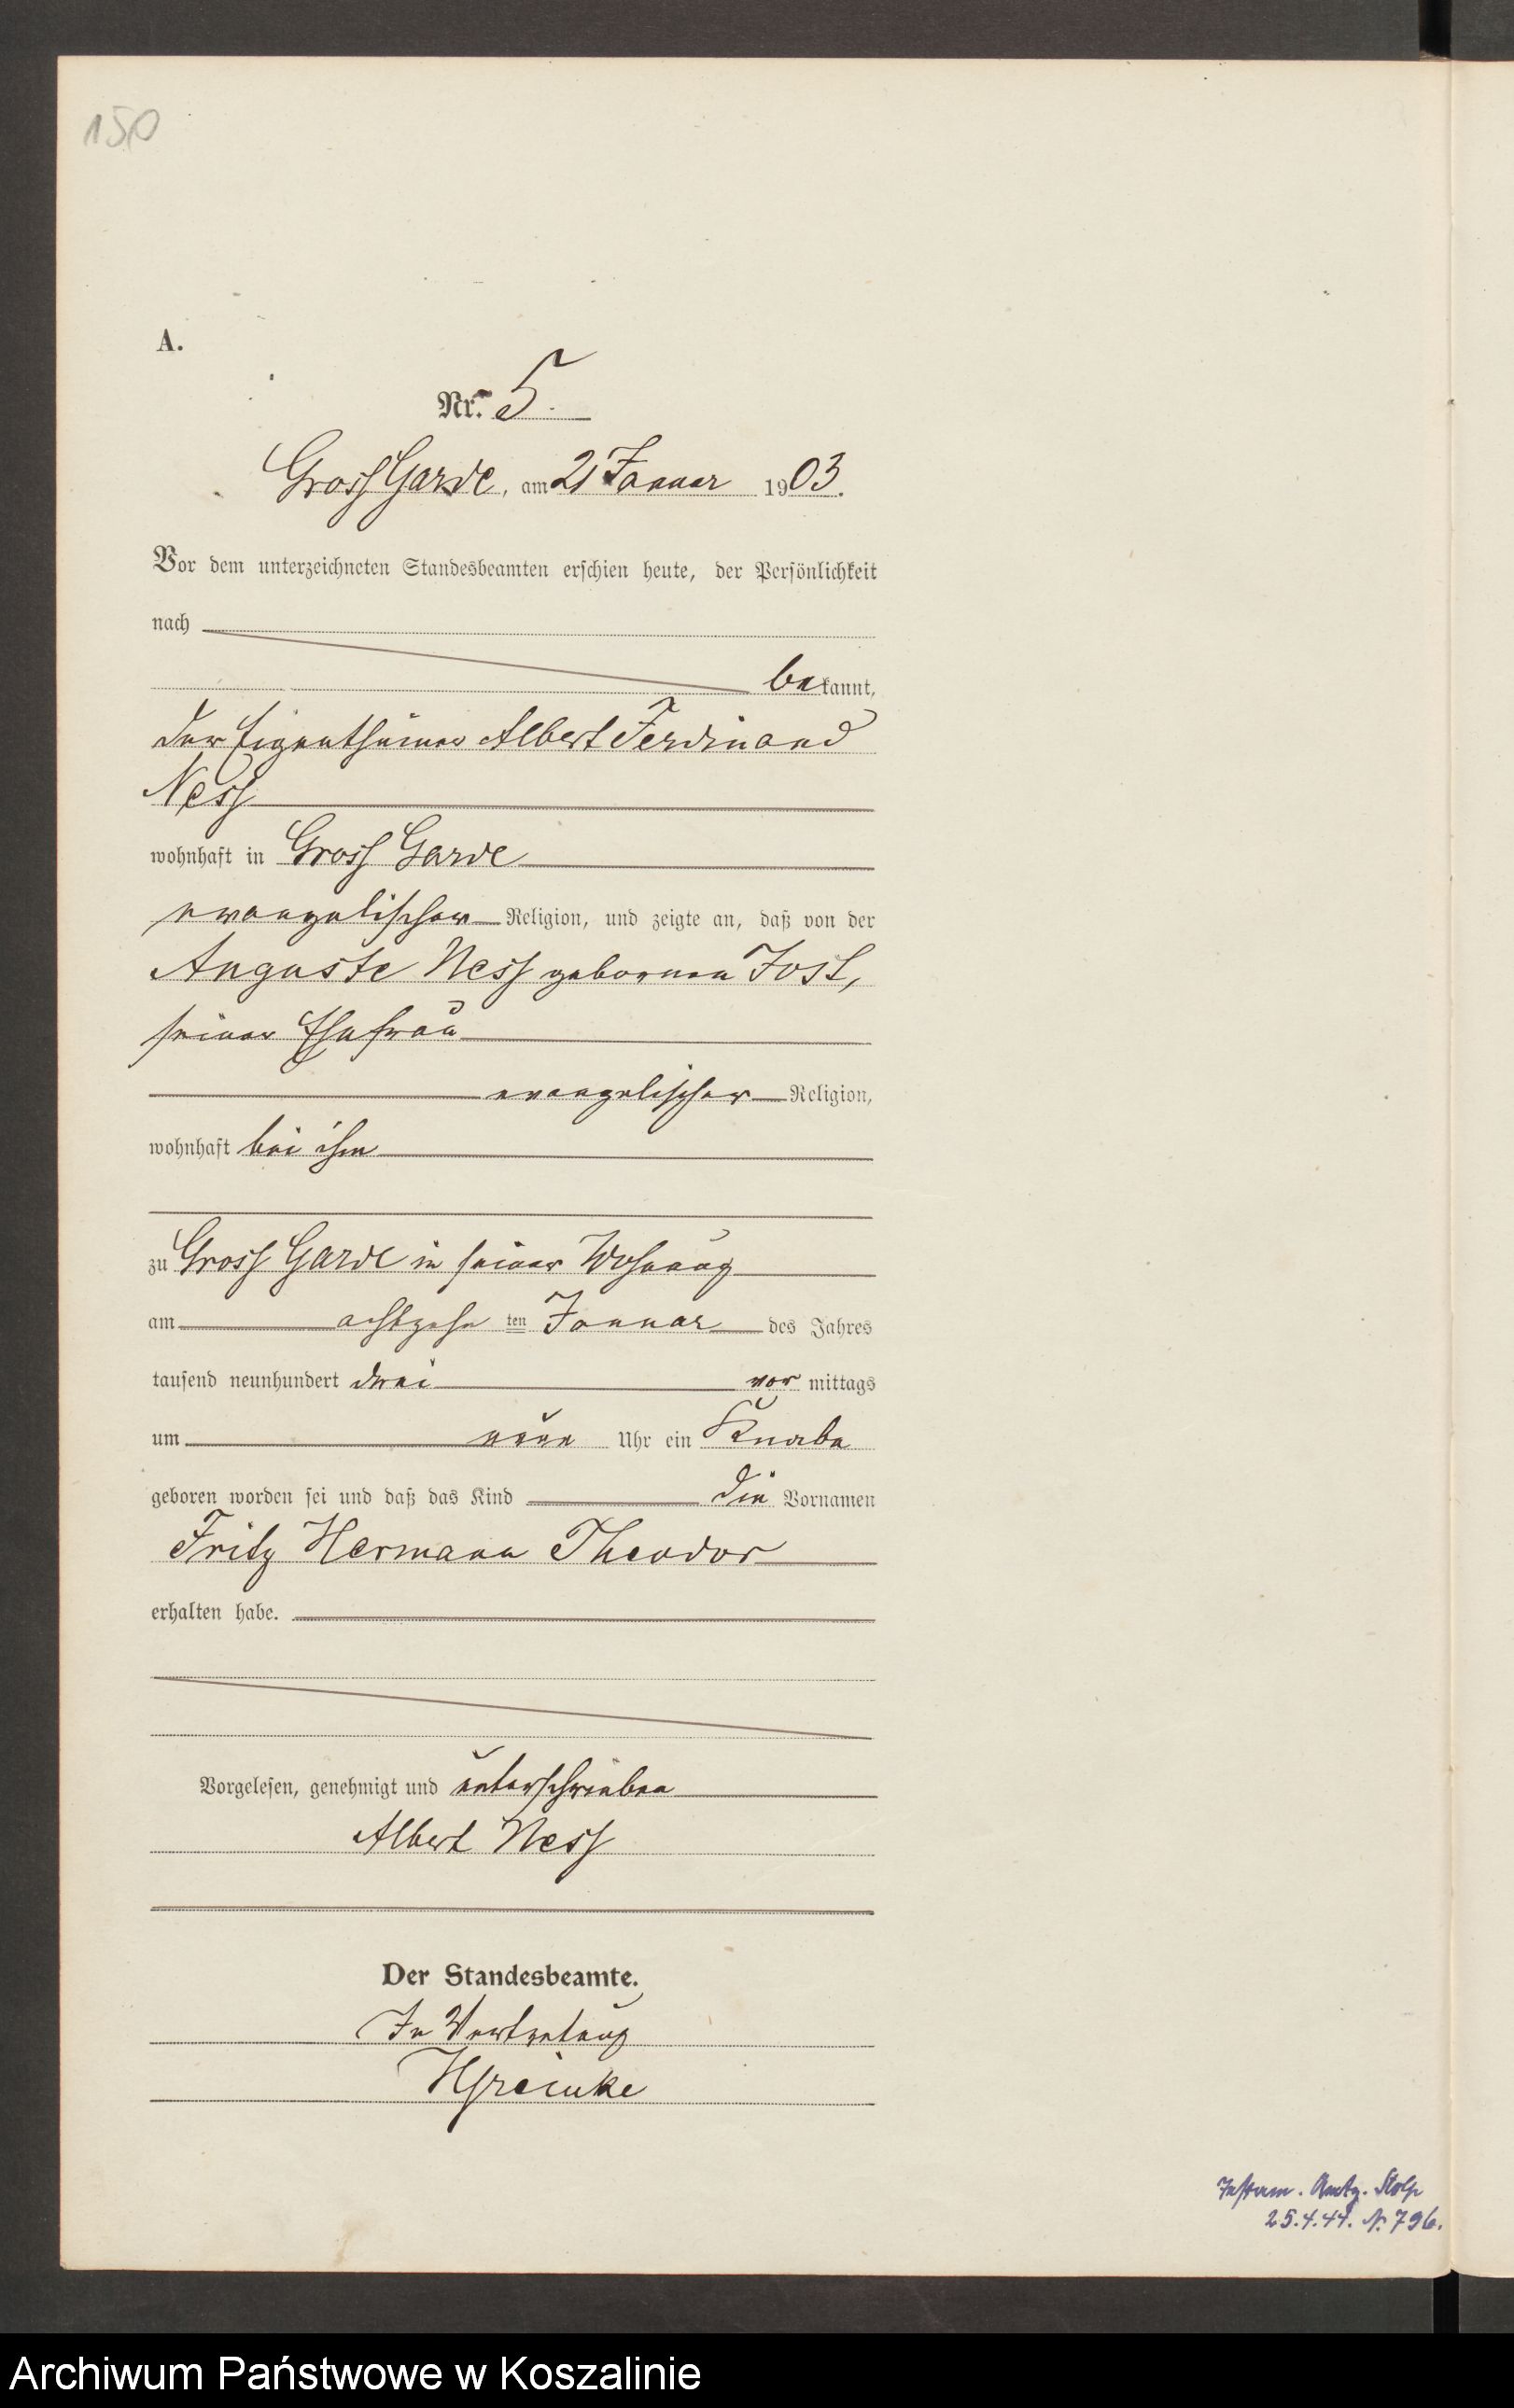 150
A.
Nr. 5.
Gross Garde, am 21 Januar 1903.
Vor dem unterzeichneten Standesbeamten erschien heute, der Persönlichkeit
nach
bekannt,
der Eigenthümer Albert Ferdinand
Ness
wohnhaft in Gross Garde
evangelischer Religion, und zeigte an, daß von der
Auguste Ness geborenen Jost,
seiner Ehefrau
evangelischer Religion,
wohnhaft bei ihm
zu Gross Garde in seiner Wohnung
am achtzehn ten Januar des Jahres
tausend neunhundert drei vor mittags
um neun Uhr ein Knabe
geboren worden sei und daß das Kind die Vornamen
Fritz Hermann Theodor
erhalten habe.
Vorgelesen, genehmigt und unterschrieben
Albert Ness
Der Standesbeamte.
In Vertretung
Stolp
25.4.44. N. 796.
Archiwum Państwowe w Koszalinie